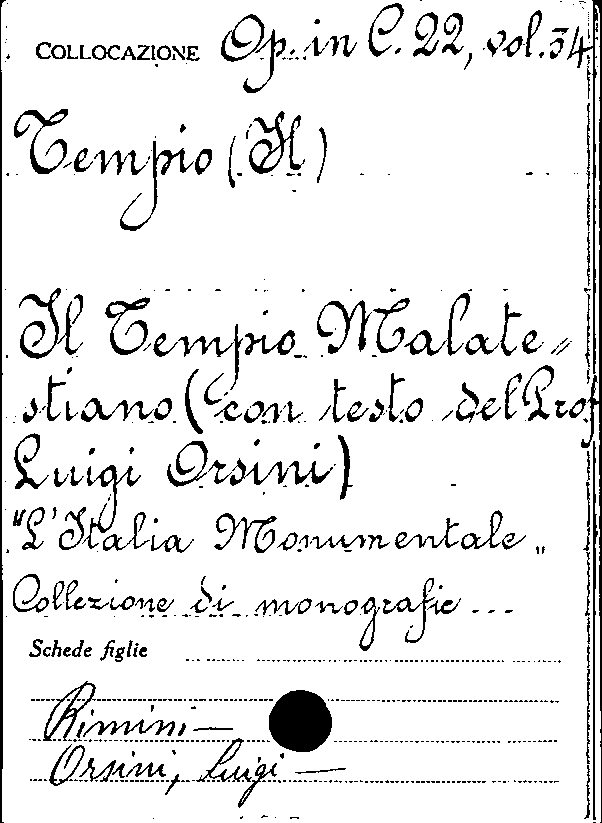 COLLOCAZIONE Op. in C. 22, vol. 34
Tempio (Il)
Il Tempio Malate=
stiano (con testo del Prof
Luigi Orsini)
"L'Italia Monumentale„
Collezione di monografie...
Schede figlie
Rimini —
Orsini, Luigi —